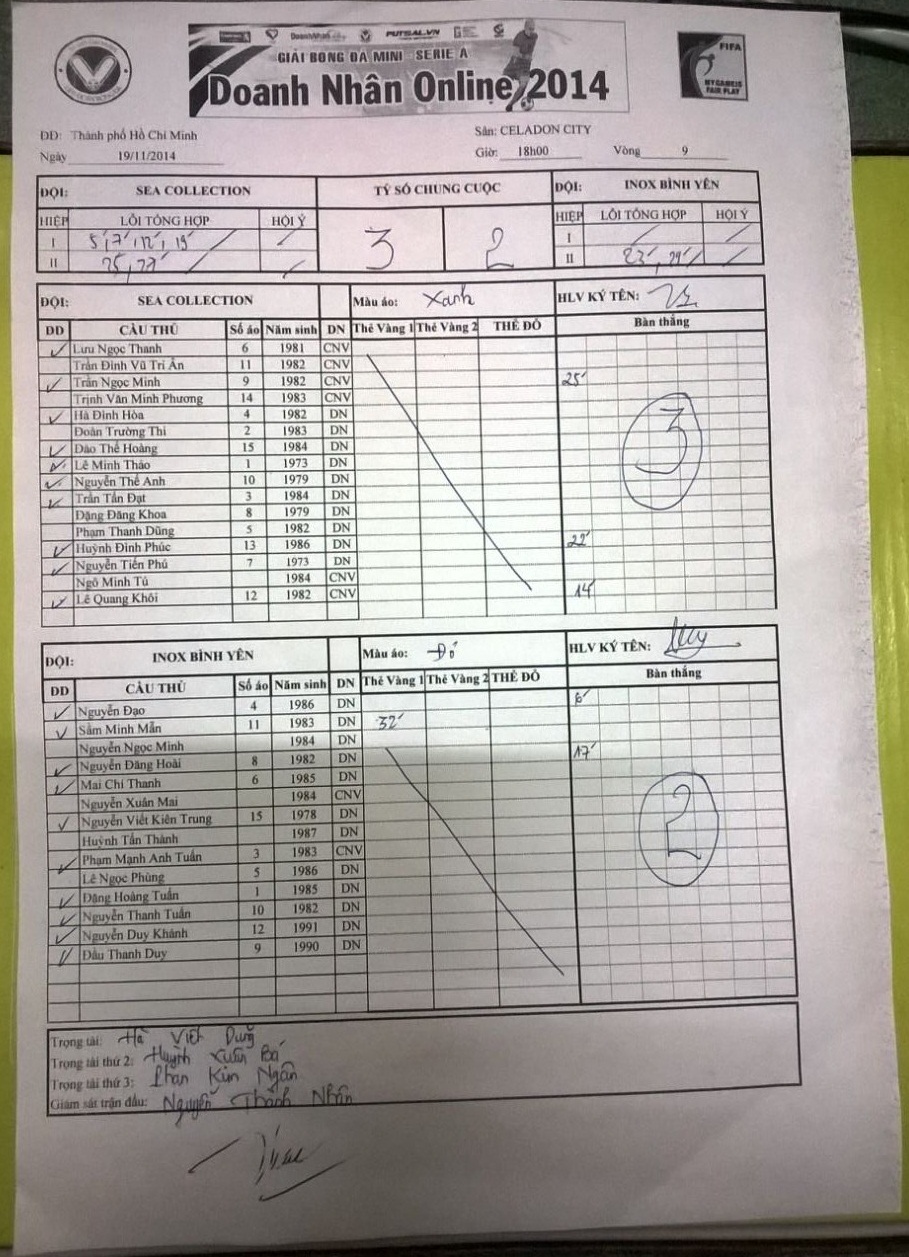 DoanhNhan PUTSAL.VN
GIẢI BÓNG ĐÁ MINI SERIE A
Doanh Nhân Online 2014
FIFA
MY GAME IS
FAIR PLAY
ĐĐ: Thành phố Hồ Chí Minh Sân: CELADON CITY
Ngày 19/11/2014 Giờ: 18h00 Vòng 9
ĐỘI: SEA COLLECTION TỶ SỐ CHUNG CUỘC ĐỘI: INOX BÌNH YÊN
HIỆP LỖI TỔNG HỢP HỘI Ý 3 2 HIỆP LỖI TỔNG HỢP HỘI Ý
I 5', 7', 12', 19' I
II 25', 27' II 23', 29'
ĐỘI: SEA COLLECTION Màu áo: Xanh HLV KÝ TÊN:
DD CẦU THỦ Số áo Năm sinh DN Thẻ Vàng 1 Thẻ Vàng 2 THẺ ĐỎ Bàn thắng
Lưu Ngọc Thanh 6 1981 CNV
Trần Đình Vũ Trí Ân 11 1982 CNV
Trần Ngọc Minh 9 1982 CNV 25'
Trịnh Văn Minh Phương 14 1983 CNV
Hà Đình Hòa 4 1982 DN
Đoàn Trường Thi 2 1983 DN
Đào Thế Hoàng 15 1984 DN
Lê Minh Thảo 1 1973 DN
Nguyễn Thế Anh 10 1979 DN
Trần Tấn Đạt 3 1984 DN
Đặng Đăng Khoa 8 1979 DN
Phạm Thanh Dũng 5 1982 DN
Huỳnh Đình Phúc 13 1986 DN 22'
Nguyễn Tiến Phú 7 1973 DN
Ngô Minh Tú 1984 CNV
Lê Quang Khôi 12 1982 CNV 14'
3
ĐỘI: INOX BÌNH YÊN Màu áo: Đỏ HLV KÝ TÊN:
DD CẦU THỦ Số áo Năm sinh DN Thẻ Vàng 1 Thẻ Vàng 2 THẺ ĐỎ Bàn thắng
Nguyễn Đạo 4 1986 DN 6'
Sầm Minh Mẫn 11 1983 DN 32'
Nguyễn Ngọc Minh 1984 DN 17'
Nguyễn Đăng Hoài 8 1982 DN
Mai Chí Thanh 6 1985 DN
Nguyễn Xuân Mai 1984 CNV
Nguyễn Viết Kiên Trung 15 1978 DN
Huỳnh Tấn Thành 1987 DN
Phạm Mạnh Anh Tuấn 3 1983 CNV
Lê Ngọc Phùng 5 1986 DN
Đặng Hoàng Tuấn 1 1985 DN
Nguyễn Thanh Tuấn 10 1982 DN
Nguyễn Duy Khánh 12 1991 DN
Đầu Thanh Duy 9 1990 DN
2
Trọng tài: Hà Việt Dũng
Trọng tài thứ 2: Huỳnh Xuân Bá
Trọng tài thứ 3: Phan Kim Ngân
Giám sát trận đấu: Nguyễn Thành Nhân